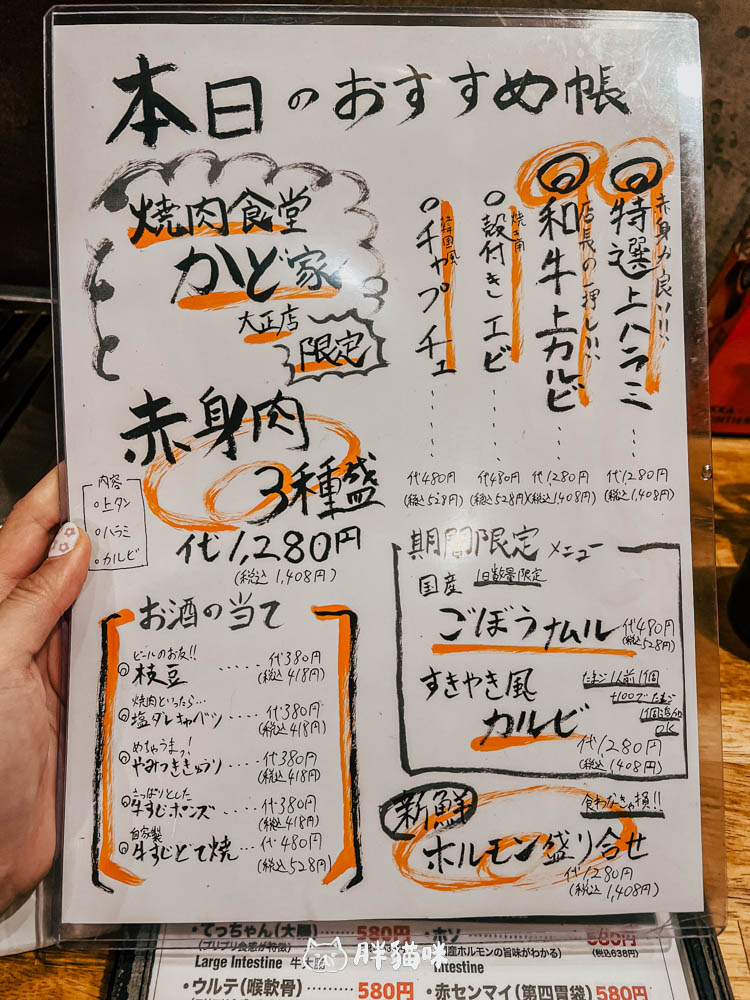 本日のおすすめ帳
焼肉食堂
かど家
大正店
限定
赤身が良い!!!
◎特選上ハラミ……
代1280円
(税込1,408円)
店長の一押し!!!
◎和牛上カルビ……
代1280円
(税込1,408円)
焼き用
○殻付きエビ……
代480円
(税込528円)
韓国風
○チャプチェ……
代480円
(税込528円)
赤身肉
3種盛
代1,280円
(税込1,408円)
内容
○上タン
○ハラミ
○カルビ
期間限定メニュー
1日数量限定
国産
ごぼうナムル 代480円
(税込528円)
すきやき風
カルビ
たまご1人前1個
+100でたまご
1個追加
OK
代1280円
(税込1408円)
お酒の当て
ビールのお友!!
◎枝豆……代380円
(税込418円)
焼肉といったら…
◎塩ダレキャベツ…代380円
(税込418円)
めちゃうまっ!
◎やみつききゅうり…代380円
(税込418円)
さっぱりとした
◎牛すじポンズ…代380円
(税込418円)
自家製
◎牛すじどて焼…代480円
(税込528円)
新鮮
食わなきゃ損!!
ホルモン盛り合せ
代1,280円
(税込1,408円)
・てっちゃん(大腸) 580円
(プリプリ食感が特徴)
Large Intestine 牛大腸
・ホソ 580円
産ホルモンの旨味がわかる) (税込638円)
Intestine
・ウルテ(喉軟骨) 580円
・赤センマイ(第四胃袋) 580円
胖貓咪